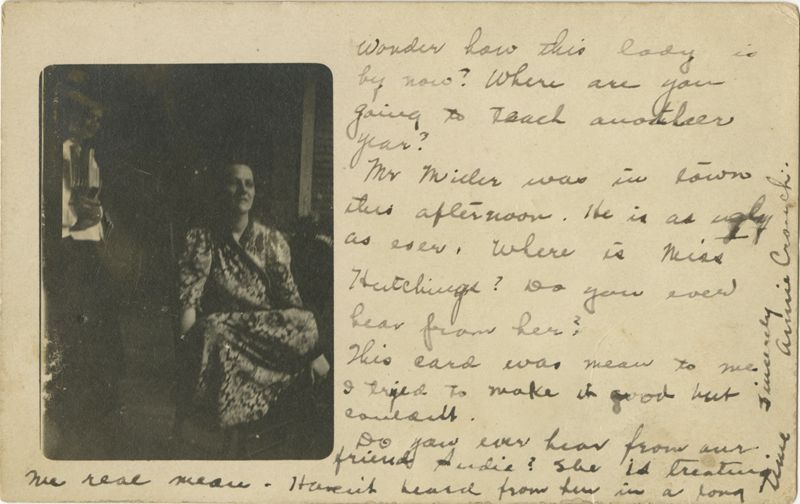 Wonder how this lady is
by now? Where are you
going to teach another
year?
Mr Miller was in town
this afternoon. He is as ugly
as ever. Where is Miss
Hutchings? Do you ever
hear from her?
This card was mean to me
I tried to make it good but
couldn't.
Do you ever hear from our
friend Audie? She is treating
me real mean. Haven't heard from her in a long
time Sincerely
Annie Crouch.